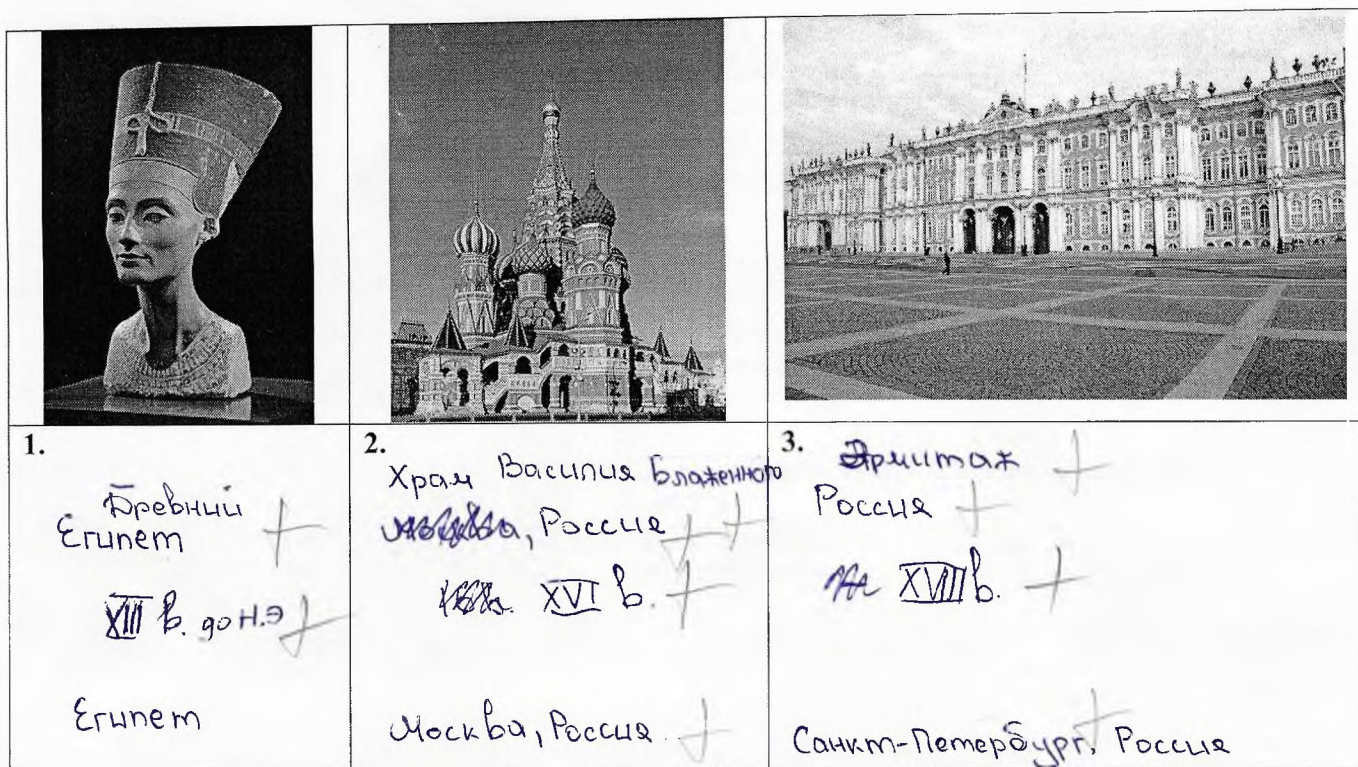 1.
Древний
Египет +
XIII в. до н.э +
Египет
2.
Храм Василия Блаженного
Москва, Россия + +
XVI в. +
Москва, Россия +
3.
Эрмитаж +
Россия +
XVIII в. +
Санкт-Петербург, Россия +